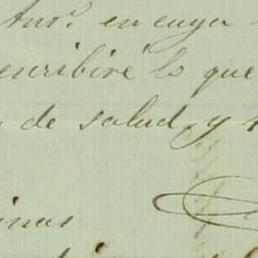 Antº. en cuya
escribiré lo que
de salud, y
inas